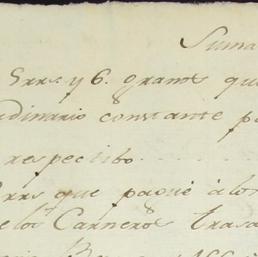 Suma
Errs. y 6. granos qu
dinario constante p
respectibo.
rrs que pagué à los
e los Carneros trasa